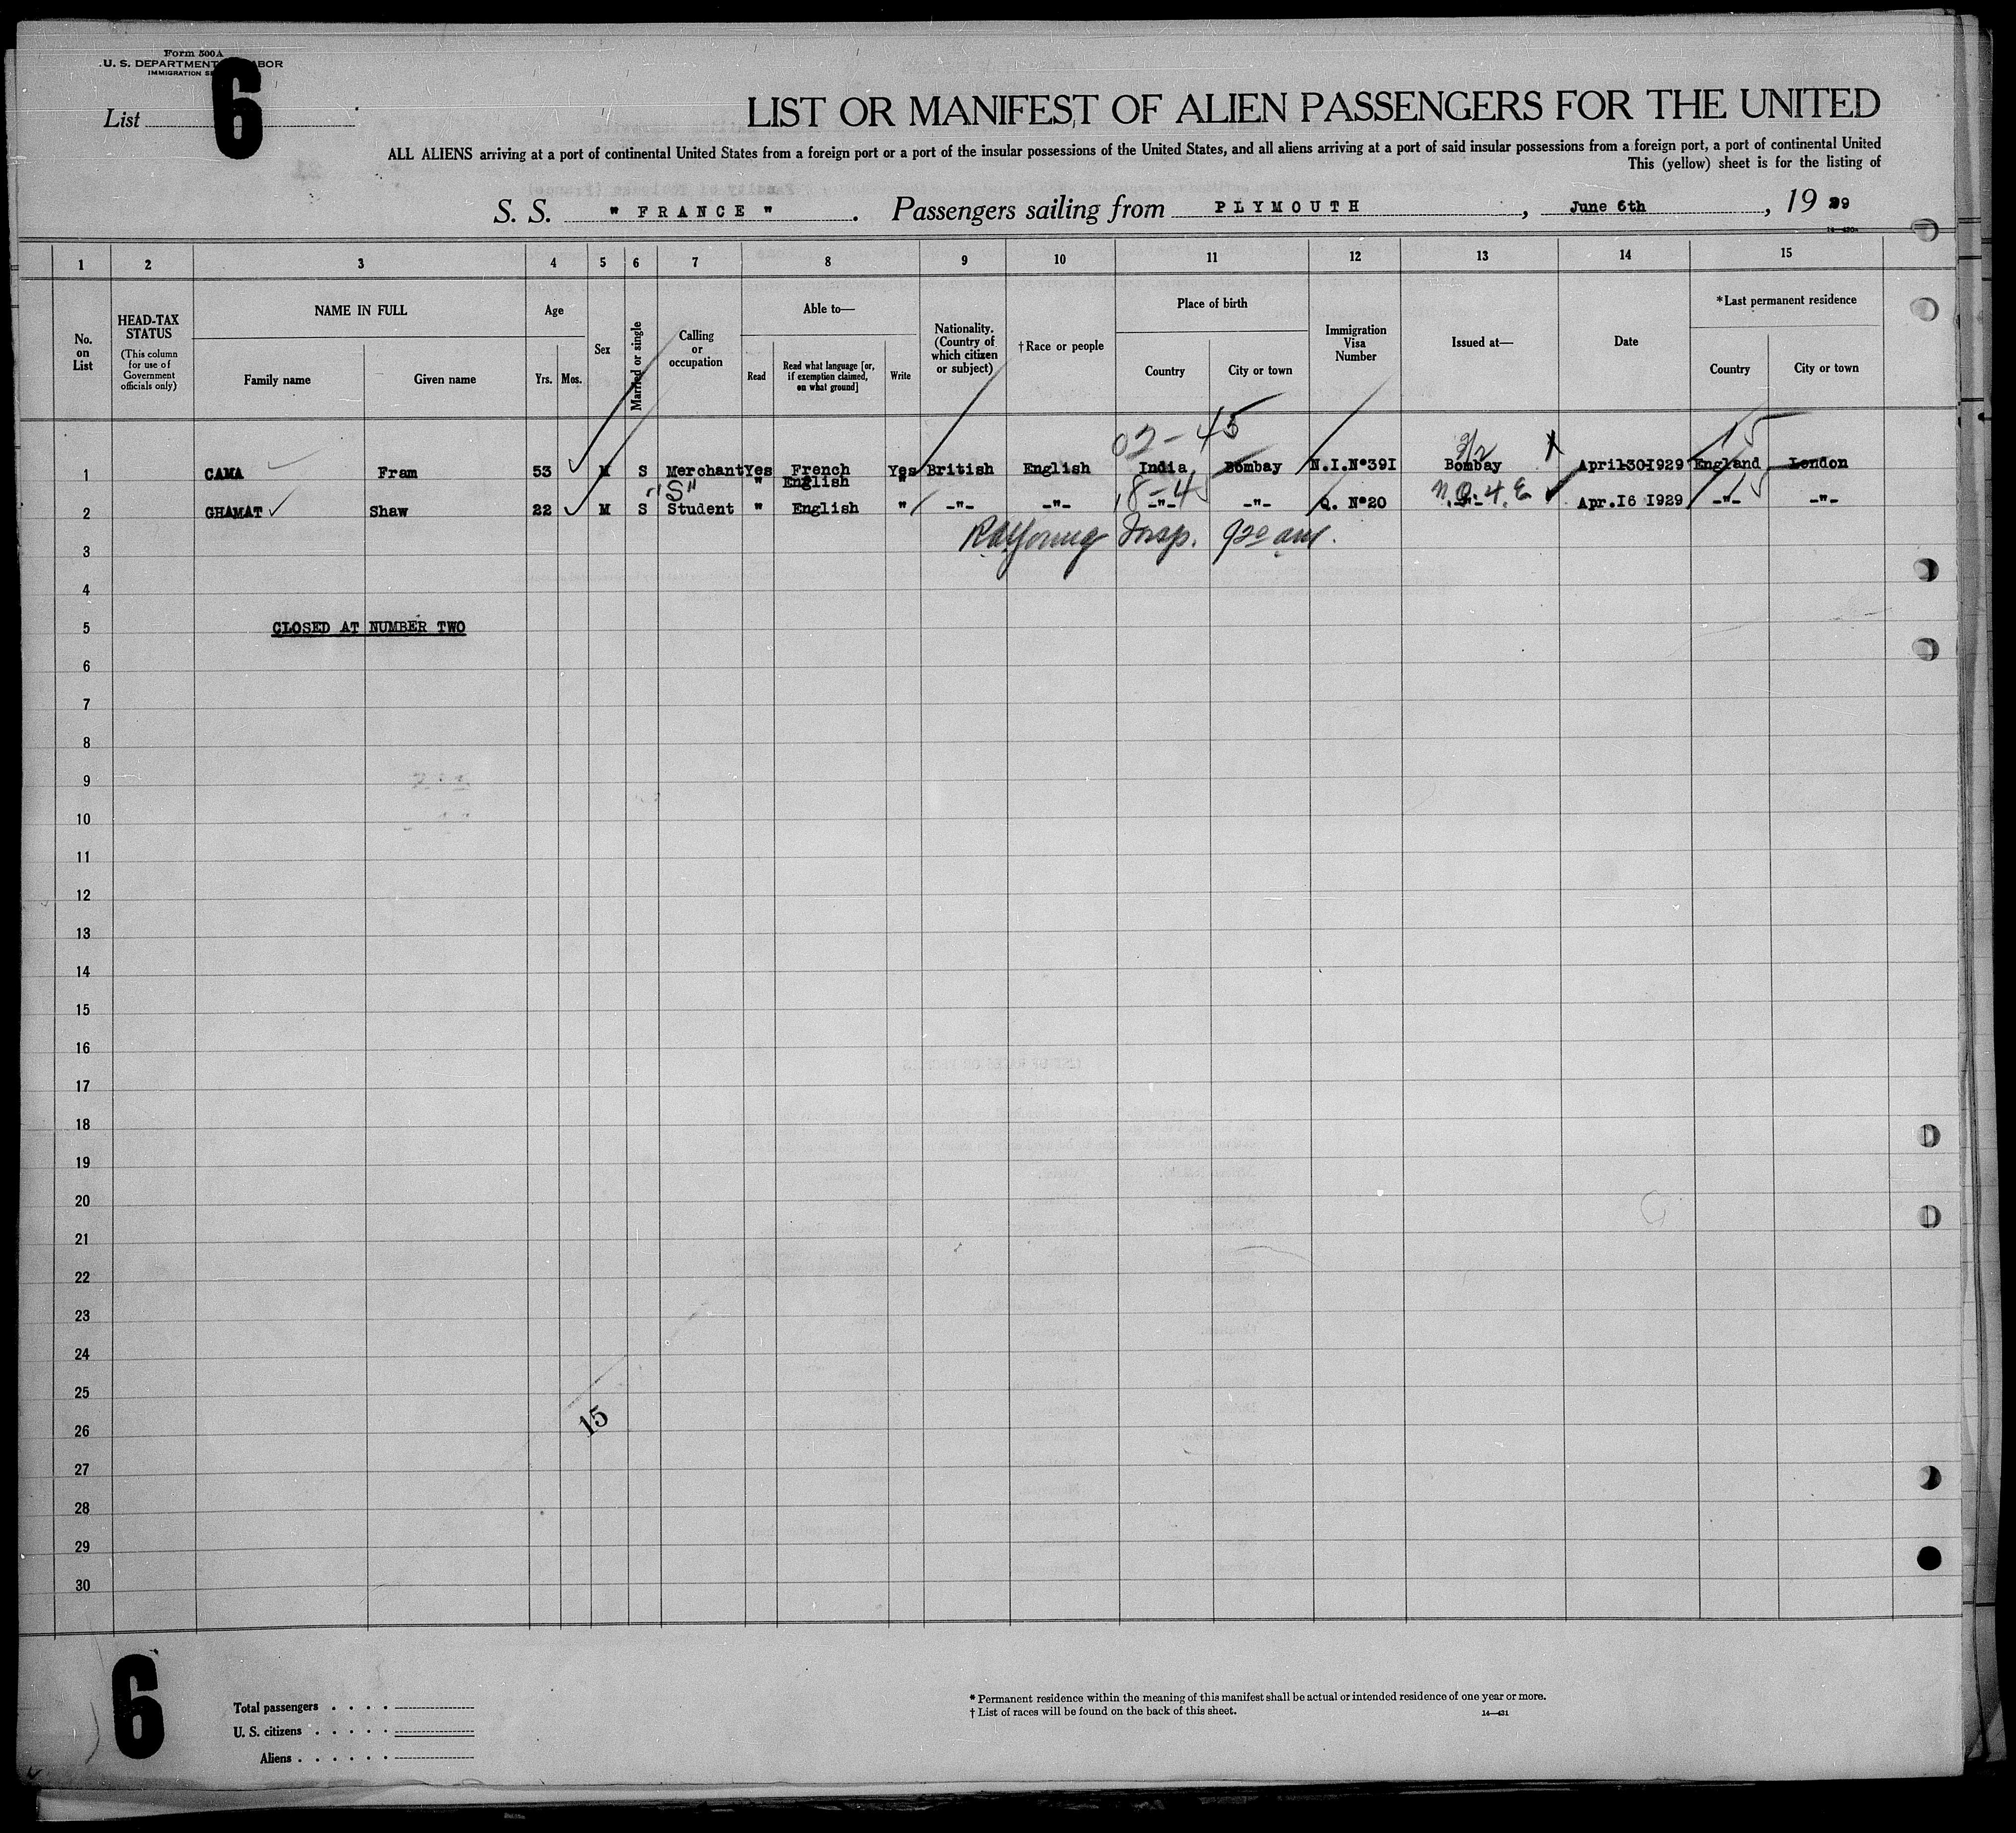 Form 500A
U. S. DEPARTMENT LABOR
IMMIGRATION
List 6
LIST OR MANIFEST OF ALIEN PASSENGERS FOR THE UNITED
ALL ALIENS arriving at a port of continental United States from a foreign port or a port of the insular possessions of the United States, and all aliens arriving at a port of said insular possessions from a foreign port, a port of continental United
This (yellow) sheet is for the listing of
S. S. " FRANCE " . Passengers sailing from PLYMOUTH , June 6th , 19 29
1 2 3 4 5 6 7 8 9 10 11 12 13 14 15
No. on List
HEAD-TAX STATUS
(This column for use of Government officials only)
NAME IN FULL
Family name Given name
Age
Yrs. Mos.
Sex
Married or single
Calling or occupation
Able to—
Read
Read what language [or, if exemption claimed, on what ground]
Write
Nationality. (Country of which citizen or subject)
† Race or people
Place of birth
Country City or town
Immigration Visa Number
Issued at—
Date
* Last permanent residence
Country City or town
02-45
1 CAMA Fram 53 M S Merchant Yes French English Yes British English India Bombay N.I.N°391 Bombay April-30-1929 England London
"S"
2 GHAMAT Shaw 22 M S Student " English " -"- -"- -"- -"- Q. N°20 -"- Apr.16 1929 -"- -"-
Insp. 9 20 am.
3
4
5 CLOSED AT NUMBER TWO
6
7
8
9
10
11
12
13
14
15
16
17
18
19
20
21
22
23
24
25
15
26
27
28
29
30
6
Total passengers . . . .
U. S. citizens . . . . .
Aliens . . . . . .
* Permanent residence within the meaning of this manifest shall be actual or intended residence of one year or more.
† List of races will be found on the back of this sheet. 14—431